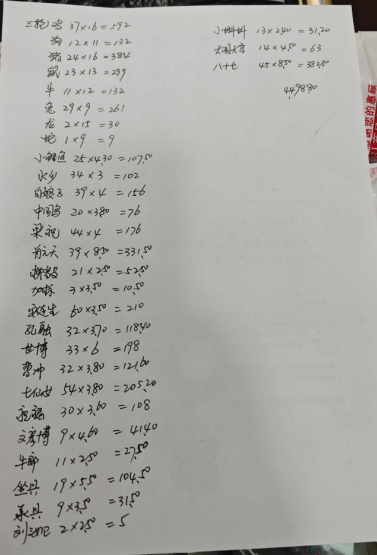 三轮 鸡 37×16=592
狗 12×11=132
猪 24×16=384
鼠 23×13=299
牛 11×12=132
兔 29×9=261
龙 2×15=30
蛇 1×9=9
25×4.30=107.50
水乡 34×3=102
39×4=156
中国 20×3.80=76
梁祝 44×4=176
39×8.50=331.50
21×2.50=52.50
3×3.50=10.50
60×3.50=210
孔融 32×3.70=118.40
世博 33×6=198
曹冲 32×3.80=121.60
七仙女 54×3.80=205.20
30×3.60=108
文彦博 9×4.60=41.40
牛郎 11×2.50=27.50
19×5.50=104.50
9×3.50=31.50
2×2.50=5
小蝌蚪 13×2.40=31.20
14×4.50=63
八十七 45×8.50=382.50
4498.80